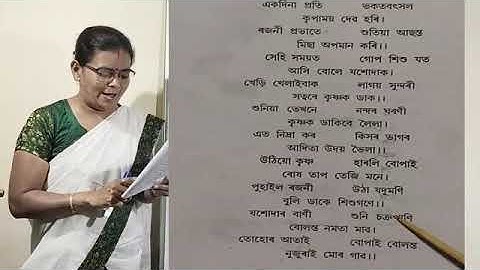 একদিনা প্ৰতি ভকতবৎসল
কৃপাময় দেৱ হৰি।
ৰজনী প্ৰভাতে শুতিয়া আছন্ত
মিছা অপমান কৰি।।
সেহি সময়ত গোপ শিশু যত
আসি বোলে যশোদাক।
খেড়ি খেলাইবাক লাগয় সুন্দৰী
সত্বৰে কৃষ্ণক ডাক।।
শুনিয়া তেখনে নন্দৰ ঘৰণী
কৃষ্ণক ডাকিবে লৈলা।
এত নিদ্ৰা কৰ কিসৰ ভাগৰ
আদিত্য উদয় ভৈলা।।
উঠিয়ো কৃষ্ণ হাৰলি বোপাই
ৰোষ তাপ তেজি মনে।
পুহাইল ৰজনী উঠা যদুমণি
বুলি ডাকে শিশুগণে।।
যশোদাৰ বাণী শুনি চক্ৰপাণি
বোলন্ত নমতা মাৱ।
তোহোৰ আতাই বোপাই বোলন্ত
নুজুৰাই মোৰ গাৱ।।